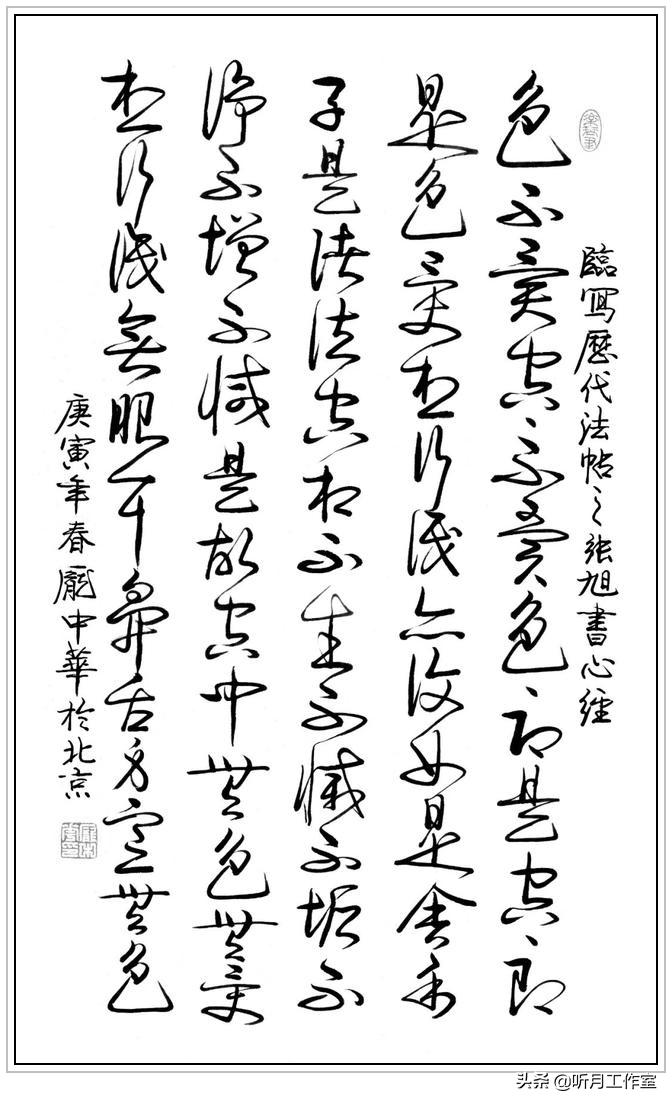 臨寫歷代法帖之張旭書心經
色不異空〻不異色〻即是空〻即
是色受想行識亦復如是舍利
子是諸法空相不生不滅不垢不
淨不增不減是故空中無色無受
想行識無眼耳鼻舌身意無色
庚寅年春龐中華於北京
头条 @听月工作室